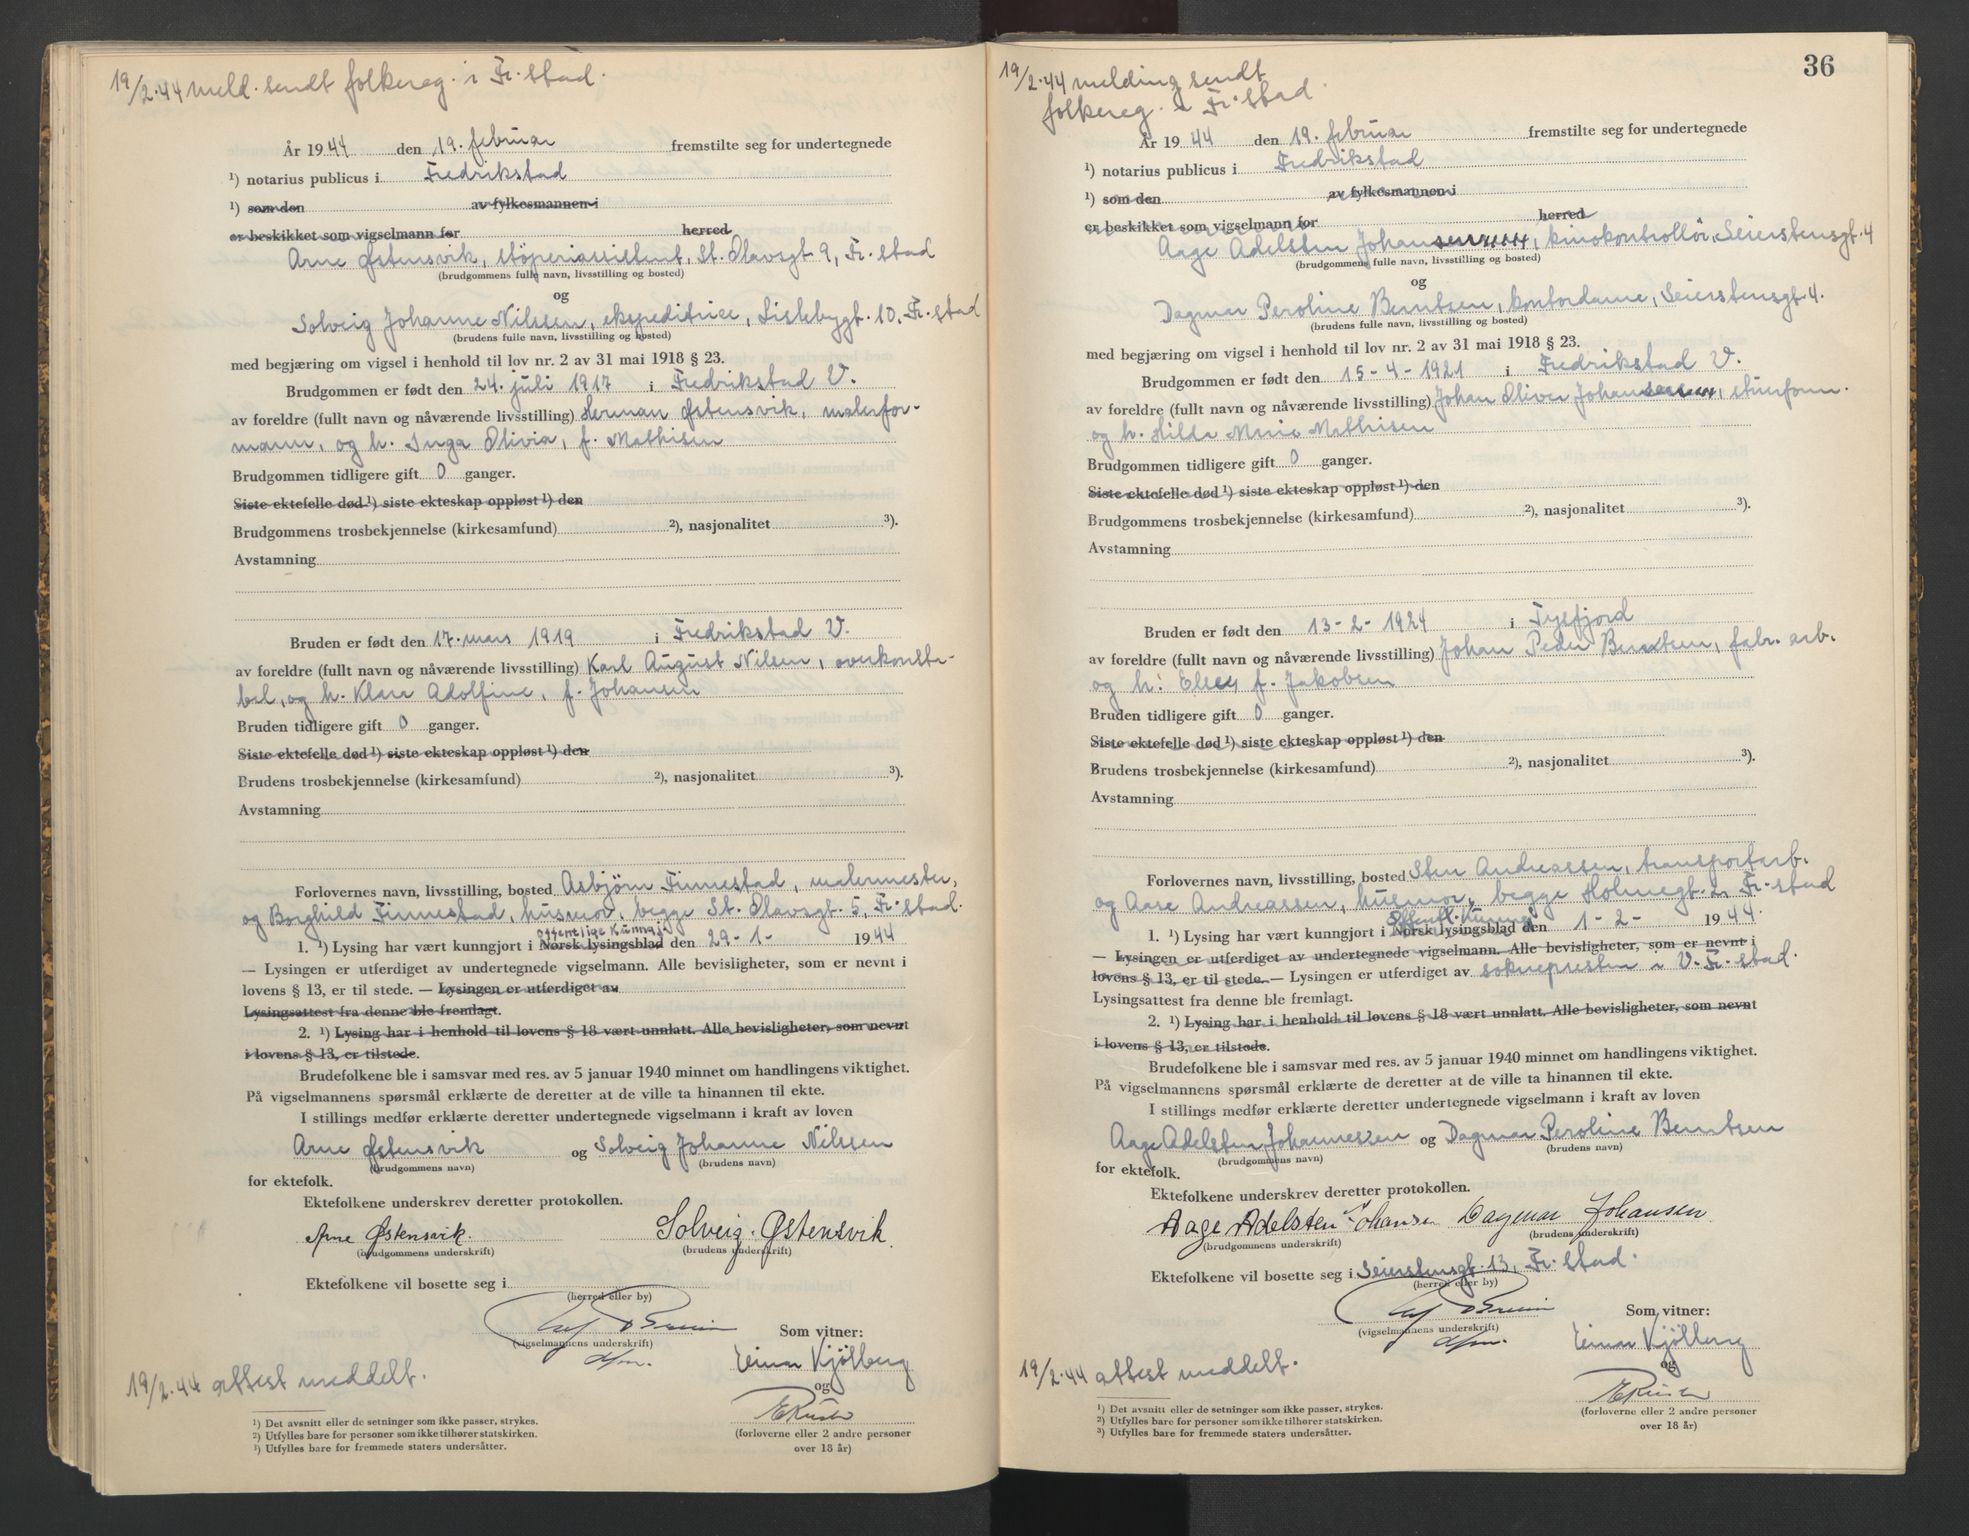 19/2.44 meld. sendt folkereg. i Fr.stad.
År 1944 den 19. februar fremstilte seg for undertegnede
¹) notarius publicus i Fredrikstad
¹) som den av fylkesmannen i
er beskikket som vigselmann for herred
Arne Østensvik, støperiassistent, St. Olavsgt 9, Fr.stad
(brudgommens fulle navn, livsstilling og bosted)
og
Solveig Johanne Nilssen, ekspeditrice, Lislebygt. 10, Fr.stad
(brudens fulle navn, livsstilling og bosted)
med begjæring om vigsel i henhold til lov nr. 2 av 31 mai 1918 § 23.
Brudgommen er født den 24. juli 1917 i Fredrikstad V.
av foreldre (fullt navn og nåværende livsstilling) Herman Østensvik, malerfor-
mann, og h. Inga Olivia, f. Mathisen
Brudgommen tidligere gift 0 ganger.
Siste ektefelle død ¹) siste ekteskap oppløst ¹) den
Brudgommens trosbekjennelse (kirkesamfund) ²), nasjonalitet ³).
Avstamning
Bruden er født den 17. mars 1919 i Fredrikstad V.
av foreldre (fullt navn og nåværende livsstilling) Karl August Nilsen, overkonsta-
bel, og h. Klara Adolfine, f. Johansen
Bruden tidligere gift 0 ganger.
Siste ektefelle død ¹) siste ekteskap oppløst ¹) den
Brudens trosbekjennelse (kirkesamfund) ²), nasjonalitet ³).
Avstamning
Forlovernes navn, livsstilling, bosted Asbjørn Finnestad, malermester,
og Borghild Finnestad, husmor, begge St. Olavsgt. 5, Fr.stad.
offentlige Kunngj.
1. ¹) Lysing har vært kunngjort i Norsk lysingsblad den 29-1- 1944
— Lysingen er utferdiget av undertegnede vigselmann. Alle bevisligheter, som er nevnt i
lovens § 13, er til stede. — Lysingen er utferdiget av
Lysingsattest fra denne ble fremlagt.
2. ¹) Lysing har i henhold til lovens § 18 vært unnlatt. Alle bevisligheter, som nevnt
i lovens § 13, er tilstede.
Brudefolkene ble i samsvar med res. av 5 januar 1940 minnet om handlingens viktighet.
På vigselmannens spørsmål erklærte de deretter at de ville ta hinannen til ekte.
I stillings medfør erklærte deretter undertegnede vigselmann i kraft av loven
Arne Østensvik og Solveig Johanne Nilssen
(brudgommens navn) (brudens navn)
for ektefolk.
Ektefolkene underskrev deretter protokollen.
Arne Østensvik. Solveig Østensvik.
(brudgommens underskrift) (brudens underskrift)
Ektefolkene vil bosette seg i
(herred eller by)
(vigselmannens underskrift) Som vitner:
Einar Kjølberg
19/2.44 attest meddelt.
og
¹) Det avsnitt eller de setninger som ikke passer, strykes.
²) Utfylles bare for personer som ikke tilhører statskirken.
³) Utfylles bare for fremmede staters undersåtter.
(forloverne eller 2 andre personer
over 18 år)
36
19/2.44 melding sendt
folkereg. i Fr.stad.
År 1944 den 19. februar fremstilte seg for undertegnede
¹) notarius publicus i Fredrikstad
¹) som den av fylkesmannen i
er beskikket som vigselmann for herred
Aage Adelsten Johansen, kinokontrollør, Seierstensgt. 4
(brudgommens fulle navn, livsstilling og bosted)
og
Dagmar Peroline Berntsen, kontordame, Seierstensgt. 4.
(brudens fulle navn, livsstilling og bosted)
med begjæring om vigsel i henhold til lov nr. 2 av 31 mai 1918 § 23.
Brudgommen er født den 15-4-1921 i Fredrikstad V.
av foreldre (fullt navn og nåværende livsstilling) Johan Oliver Johansen, stuerform.
og h. Hilda Marie Mathisen
Brudgommen tidligere gift 0 ganger.
Siste ektefelle død ¹) siste ekteskap oppløst ¹) den
Brudgommens trosbekjennelse (kirkesamfund) ²), nasjonalitet ³).
Avstamning
Bruden er født den 13-2-1924 i Tysfjord
av foreldre (fullt navn og nåværende livsstilling) Johan Peder Berntsen, fabr. arb.
og h. f. Jakobsen
Bruden tidligere gift 0 ganger.
Siste ektefelle død ¹) siste ekteskap oppløst ¹) den
Brudens trosbekjennelse (kirkesamfund) ²), nasjonalitet ³).
Avstamning
Forlovernes navn, livsstilling, bosted Sten Andreassen, transportarb.
og Aase Andreassen, husmor, begge Holmegt. 2, Fr.stad
Offentl. Kunngj.
1. ¹) Lysing har vært kunngjort i Norsk lysingsblad den 1-2- 1944.
— Lysingen er utferdiget av undertegnede vigselmann. Alle bevisligheter, som er nevnt i
lovens § 13, er til stede. — Lysingen er utferdiget av soknepresten i V. Fr.stad.
Lysingsattest fra denne ble fremlagt.
2. ¹) Lysing har i henhold til lovens § 18 vært unnlatt. Alle bevisligheter, som nevnt
i lovens § 13, er tilstede.
Brudefolkene ble i samsvar med res. av 5 januar 1940 minnet om handlingens viktighet.
På vigselmannens spørsmål erklærte de deretter at de ville ta hinannen til ekte.
I stillings medfør erklærte deretter undertegnede vigselmann i kraft av loven
Aage Adelsten Johannessen og Dagmar Peroline Berntsen
(brudgommens navn) (brudens navn)
for ektefolk.
Ektefolkene underskrev deretter protokollen.
Aage Adelsten Johansen Dagmar Johansen
(brudgommens underskrift) (brudens underskrift)
Ektefolkene vil bosette seg i Seierstensgt. 13, Fr.stad.
(herred eller by)
Som vitner:
(vigselmannens underskrift)
Einar Kjølberg
19/2.44 attest meddelt.
og
¹) Det avsnitt eller de setninger som ikke passer, strykes.
²) Utfylles bare for personer som ikke tilhører statskirken.
³) Utfylles bare for fremmede staters undersåtter.
(forloverne eller 2 andre personer
over 18 år)